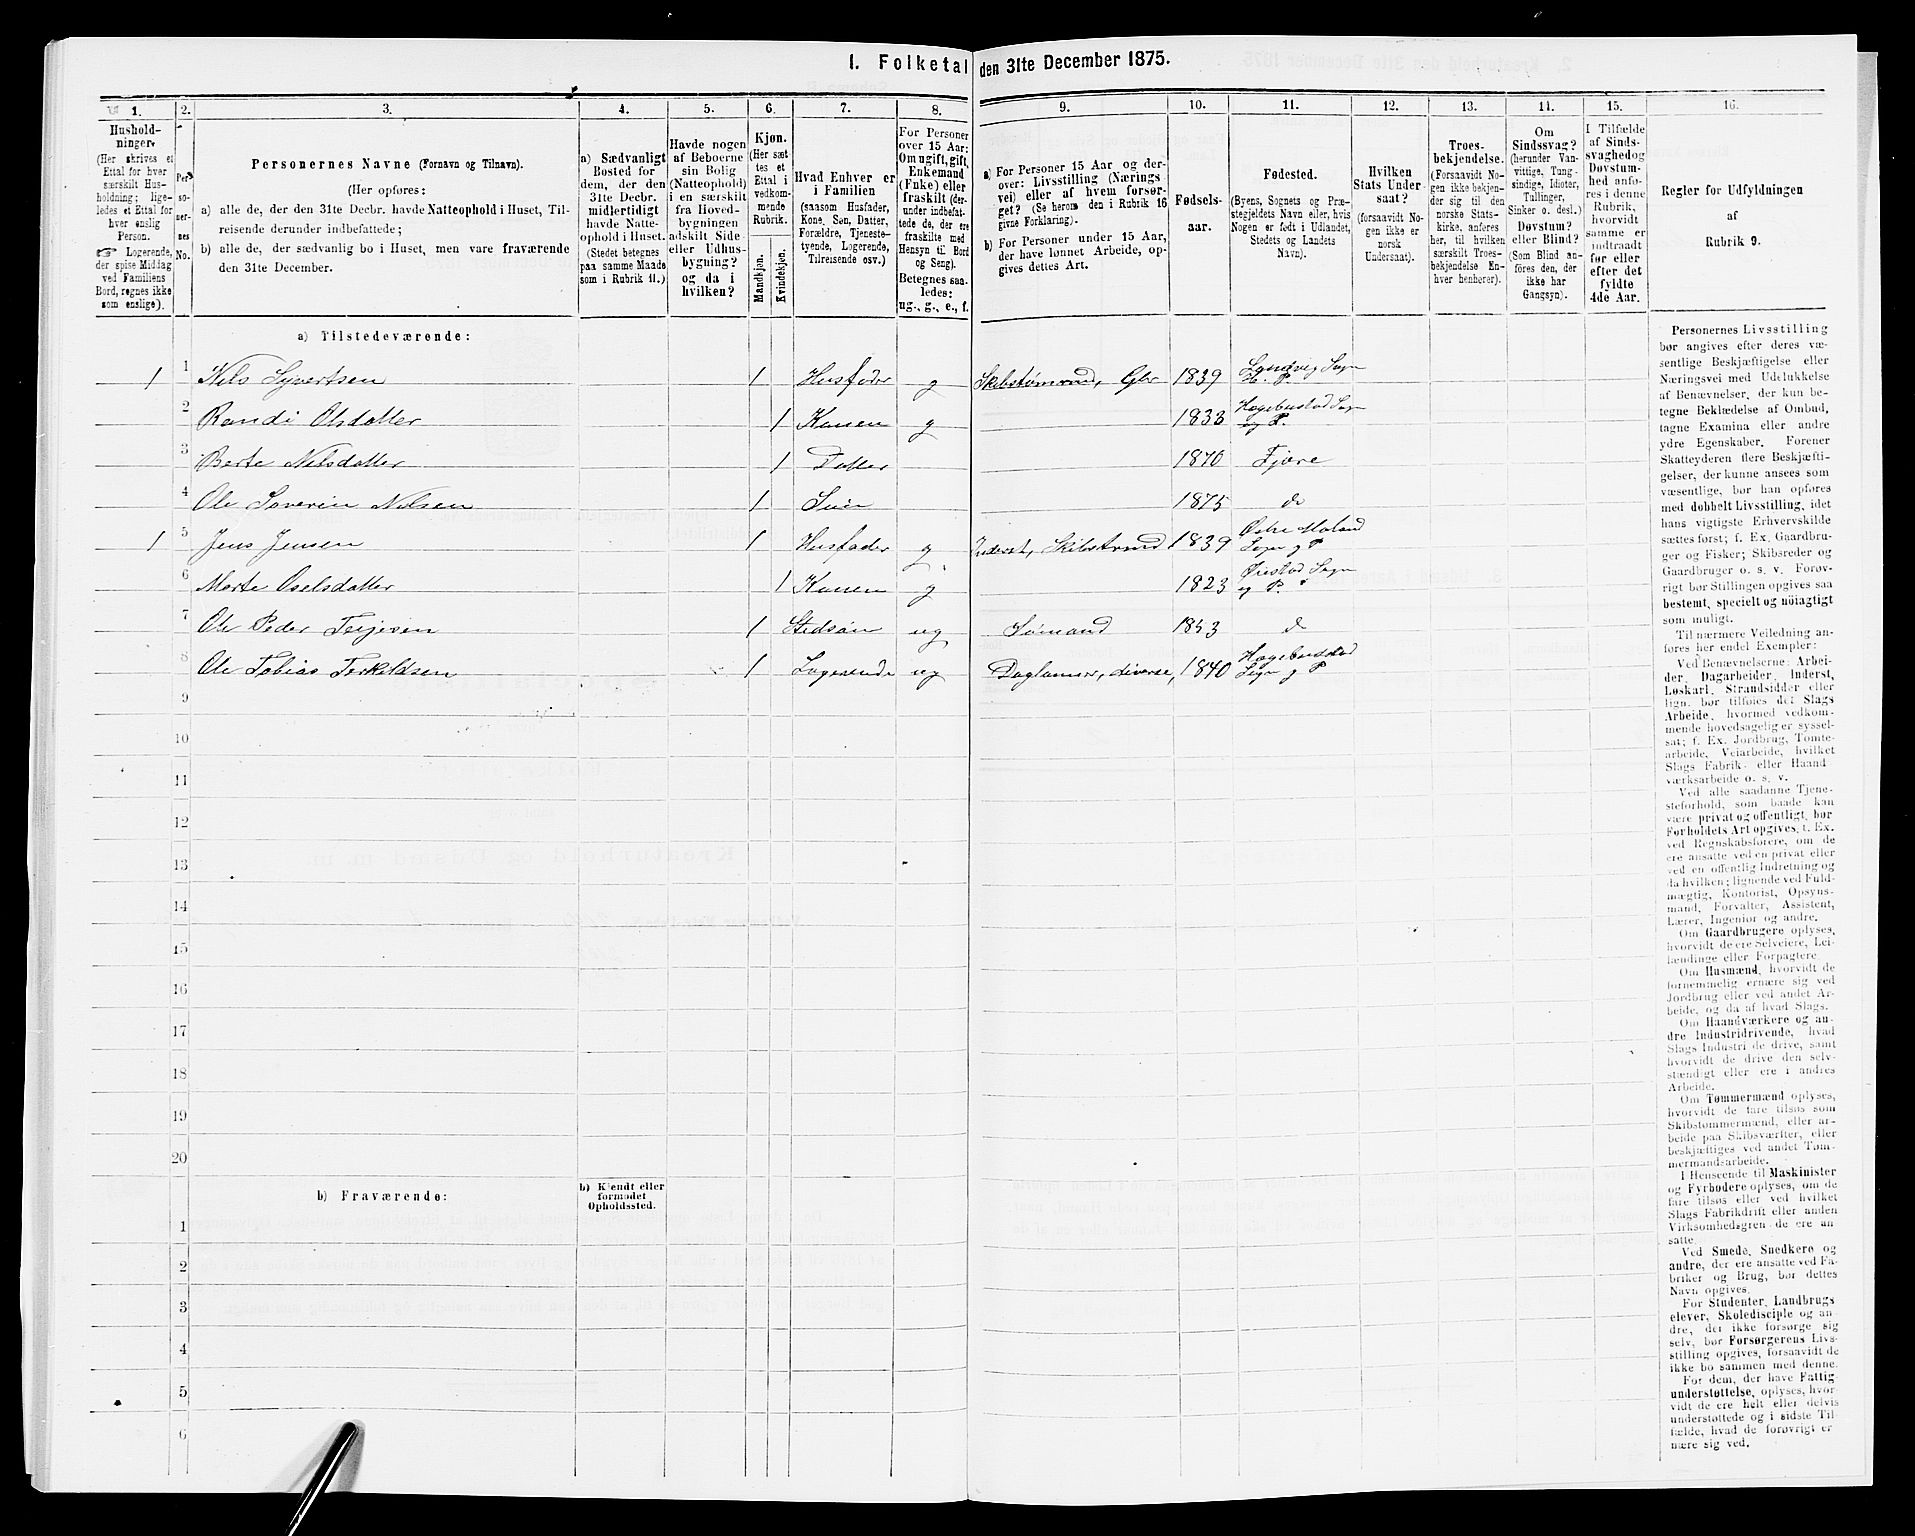 I. Folketal den 31te December 1875.
1.
2.
3.
4.
5.
6.
7.
8.
9.
10.
11.
12.
13.
14.
15.
16.
Hushold-
ninger.
(Her skrives et
Ettal for hver
særskilt Hus-
holdning; lige-
ledes et Ettal for
hver enslig
Person.
☞ Logerende,
der spise Middag
ved Familiens
Bord, regnes ikke
som enslige).
Per-
so-
ner-
nes
No.
Personernes Navne (Fornavn og Tilnavn).
(Her opføres:
a) alle de, der den 31te Decbr. havde Natteophold i Huset, Til-
reisende derunder indbefattede;
b) alle de, der sædvanlig bo i Huset, men vare fraværende
den 31te December.
a) Sædvanligt
Bosted for
dem, der den
31te Decbr.
midlertidigt
havde Natte-
ophold i Huset.
(Stedet betegnes
paa samme Maade
som i Rubrik 11.)
Havde nogen
af Beboerne
sin Bolig
(Natteophold)
i en særskilt
fra Hoved-
bygningen
adskilt Side-
eller Udhus-
bygning?
og da i
hvilken?
Kjøn.
(Her sæt
tes et
Ettal i
vedkom-
mende
Rubrik.
Mandkjøn.
Kvindekjøn.
Hvad Enhver er
i Familien
(saasom Husfader,
Kone, Søn, Datter,
Forældre, Tjeneste-
tyende, Logerende,
Tilreisende osv.)
For Personer
over 15 Aar:
Om ugift, gift,
Enkemand
(Enke) eller
fraskilt (der-
under indbefat-
tede de, der ere
fraskilte med
Hensyn til Bord
og Seng).
Betegnes saa-
ledes:
ug., g., e., f.
a) For Personer 15 Aar og der-
over: Livsstilling (Nærings
vei) eller af hvem forsør-
get? (Se herom den i Rubrik 16
givne Forklaring).
b) For Personer under 15 Aar,
der have lønnet Arbeide, op-
gives dettes Art.
Fødsels-
aar.
Fødested.
(Byens, Sognets og Præ-
stegjeldets Navn eller, hvis
Nogen er født i Udlandet,
Stedets og Landets
Navn).
Hvilken
Stats Under-
saat?
(forsaavidt No-
gen ikke er
norsk
Undersaat).
Troes-
bekjendelse.
(Forsaavidt No-
gen ikke bekjen-
der sig til den
norske Stats-
kirke, anføres
her, til hvilken
særskilt Troes-
bekjendelse En-
hver henhører).
Om
Sindssvag?
(herunder Van-
vittige, Tung-
sindige, Idioter,
Tullinger,
Sinker o. desl.)
Døvstum?
eller Blind?
(Som Blind an-
føres den, der
ikke har
Gangsyn).
I Tilfælde
af Sinds-
svaghed og
Døvstum-
hed anfø-
res i denne
Rubrik,
hvorvidt
samme er
indtraadt
før eller
efter det
fyldte
4de Aar.
Regler for Udfyldningen
af
Rubrik 9.
a) Tilstedeværende:
1 1 Nils Syvertsen 1 Husfader g Skibstømrmd, Gbr 1839 Landvig Sogn H. P.
2 Randi Olsdatter 1 Konen g 1833 Hægebostad Sogn og P.
3 Berte Nilsdatter 1 Datter 1870 Fjære
4 Ole Severin Nilsen 1 Søn 1875 do
1 5 Jens Jensen 1 Husfader g Inderst, Skibstmmd 1839 Østre Moland Sogn og P
6 Marte Oselsdatter 1 Konen g 1823 Øiestad Sogn og P.
7 Ole Peder Terjesen 1 Stedsøn ug Sømand 1853 do
8 Ole Tobias Torkeldsen 1 Logerende ug Daglønner, diverse, 1840 Hægebostad Sogn og P
9
10
11
12
13
14
15
16
17
18
19
20
b) Fraværende:
b) Kjendt eller
formodet
Opholdssted.
1
2
3
4
5
6
Personernes Livsstilling
bør angives efter deres væ-
sentlige Beskjæftigelse eller
Næringsvei med Udelukkelse
af Benævnelser, der kun be-
tegne Beklædelse af Ombud,
tagne Examina eller andre
ydre Egenskaber. Forener
Skatteyderen flere Beskjæfti-
gelser, der kunne ansees som
væsentlige, bør han opføres
med dobbelt Livsstilling, idet
hans vigtigste Erhvervskilde
sættes først; f. Ex. Gaardbru-
ger og Fisker; Skibsreder og
Gaardbruger o. s. v. Forøv-
rigt bør Stillingen opgives saa
bestemt, specielt og nöiagtigt
som muligt.
Til nærmere Veiledning an-
føres her endel Exempler:
Ved Benævnelserne: Arbei-
der, Dagarbeider, Inderst,
Løskarl, Strandsidder eller
lign. bør tilføies det Slags
Arbeide, hvormed vedkom-
mende hovedsagelig er syssel-
sat; f. Ex. Jordbrug, Tomte-
arbeide, Veiarbeide, hvilket
Slags Fabrik- eller Haand
værksarbeide o. s. v.
Ved alle saadanne Tjene-
steforhold, som baade kan
være privat og offentligt, bør
Forholdets Art opgives, f. Ex.
ved Regnskabsførere, om de
ere ansatte ved en privat eller
ved en offentlig Indretning og
da hvilken; lignende ved Fuld-
mægtig, Kontorist, Opsyns-
mand, Forvalter, Assistent,
Lærer, Ingeniør og andre.
Om Gaardbrugere oplyses,
hvorvidt de ere Selveiere, Lei-
lændinge eller Forpagtere.
Om Husmænd, hvorvidt de
fornemmelig ernære sig ved
Jordbrug eller ved andet Ar-
beide, og da af hvad Slags.
Om Haandværkere og an-
dre Industridrivende, hvad
Slags Industri de drive, samt
hvorvidt de drive den selv-
stændigt eller ere i andres
Arbeide.
Om Tømmermænd oplyses,
hvorvidt de fare tilsøs som
Skibstømmermænd, eller ar-
beide paa Skibsværfter, eller
beskjæftiges ved andet Tøm-
mermandsarbeide.
I Henseende til Maskinister
og Fyrbødere oplyses, om de
fare tilsøs eller ved hvilket
Slags Fabrikdrift eller anden
Virksomhedsgren de ere an
satte.
Ved Smede, Snedkere og
andre, der ere ansatte ved Fa-
briker og Brug, bør dettes
Navn opgives.
For Studenter, Landbrugs
elever, Skoledisciple og an-
dre, der ikke forsørge sig
selv, bør Forsørgerens Livs-
stilling opgives, forsaavidt de
ikke bo sammen med denne.
For dem, der have Fattig-
understøttelse, oplyses, hvor-
vidt de ere helt eller delvis
understøttede og i sidste Til-
fælde, hvad de forøvrigt er
nære sig ved.